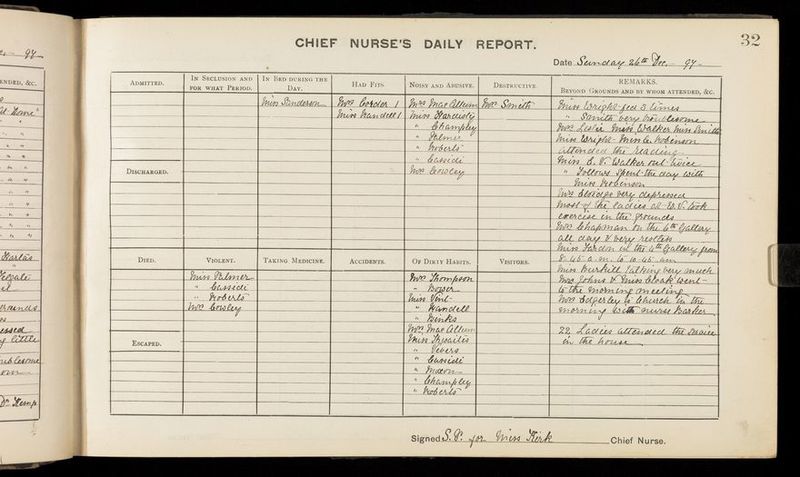 97
32
CHIEF NURSE'S DAILY REPORT.
Date Sunday 26th Dec. 97
ENDED, &c.
ADMITTED.
IN SECLUSION AND FOR WHAT PERIOD.
IN BED DURING THE DAY.
Miss Sinderson
HAD FITS.
Mrs Corder 1
Miss Mandell 1
NOISY AND ABUSIVE.
Mrs MacCallum
Miss Hardisty
" Champley
" Palmer
" Roberts
" Cassidi
Mrs Cowley
DESTRUCTIVE.
Mrs Smith
REMARKS.
BEYOND GROUNDS AND BY WHOM ATTENDED, &c.
Miss Wright fed 3 times
" Smith very troublesome
Miss Walker Miss Smith
Miss Wright Miss Robinson
attended the reading
Miss E. V. Walker out twice
" spent the day with
Miss Robinson
very depressed
most of the ladies took
exercise in the grounds
Mrs Chapman on the 6th Gallery
all day & very restless
Miss Yardon in the 4th Gallery from
8.45 a.m. to 10.45 am
Miss Burkill talking very much
Mrs Johns & Miss Cloak went
to the morning meeting
Mrs Edgerley to Church in the
morning with nurse Barker
22 Ladies attended the service
in the house
DISCHARGED.
DIED.
VIOLENT.
Miss Palmer
" Cassidi
" Roberts
Mrs Cowley
TAKING MEDICINE.
ACCIDENTS.
OF DIRTY HABITS.
Mrs Thompson
" Bowser
Miss Vint
" Mandell
" Binks
Mrs MacCallum
Miss Thwaites
" Vevers
" Cassidi
" Moxon
" Champley
" Roberts
VISITORS.
ESCAPED.
Signed S. P. for Miss Kirk Chief Nurse.